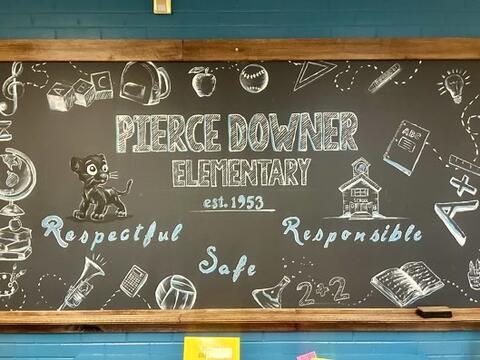 PIERCE DOWNER
ELEMENTARY
est. 1953
Respectful
Responsible
Safe
ABC
SCHOOL
A+
2+2